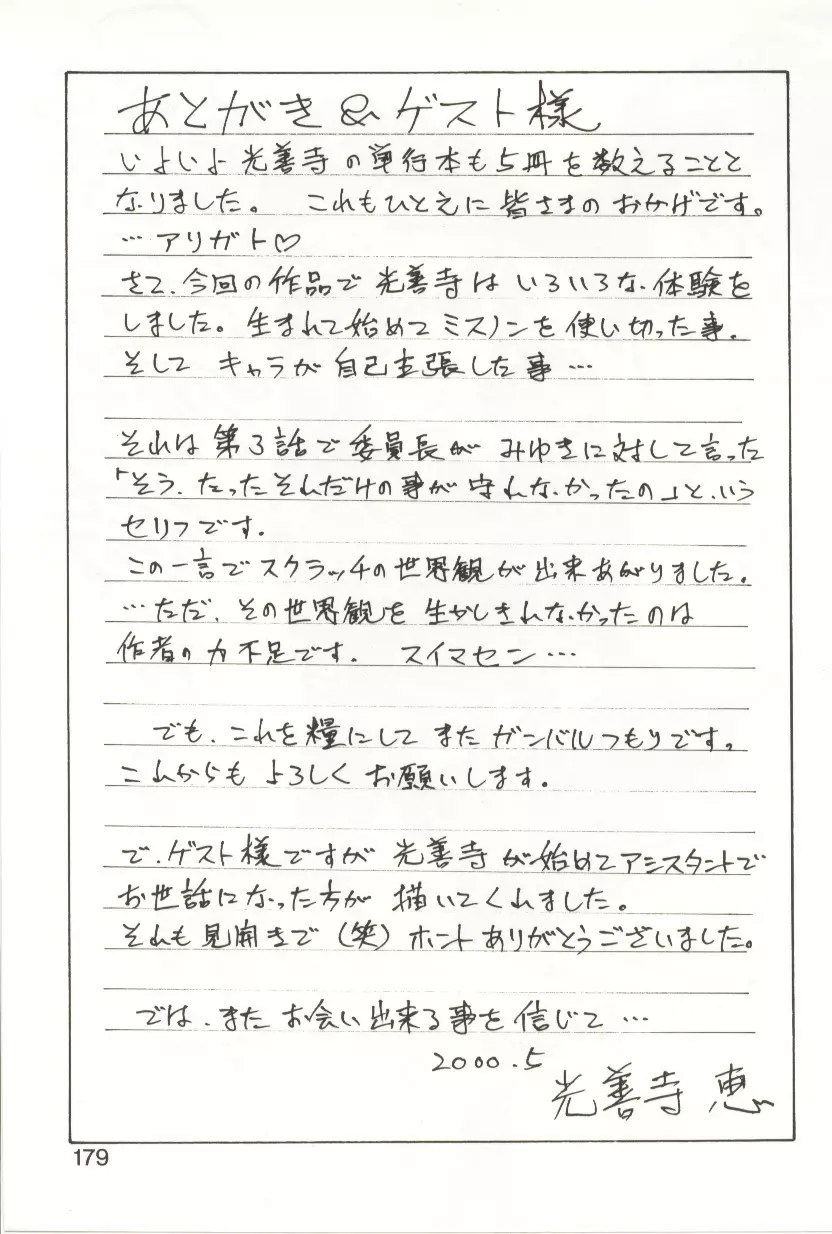 あとがき&ゲスト様
いよいよ光善寺の単行本も5冊を数えることと
なりました。 これもひとえに皆さまのおかげです。
…アリガト♡
さて、今回の作品で光善寺はいろいろな体験を
しました。生まれて始めてミスノンを使い切った事、
そして キャラが自己主張した事…
それは第3話で委員長が みゆきに対して言った
「そう、たったそれだけの事が守れなかったの」という
セリフです。
この一言でスクラッチの世界観が出来あがりました。
…ただ、その世界観を生かしきれなかったのは
作者の力不足です。 スイマセン…
でも、これを糧にして またガンバルつもりです。
これからも よろしく お願いします。
で、ゲスト様ですが 光善寺が始めてアシスタントで
お世話になった方が 描いてくれました。
それも見開きで(笑)ホントありがとうございました。
では、また お会い出来る事を信じて…
2000.5
光善寺 恵
179